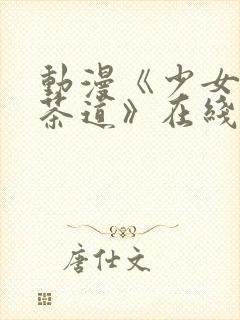 動漫《少女
茶道》在綫
唐仕文